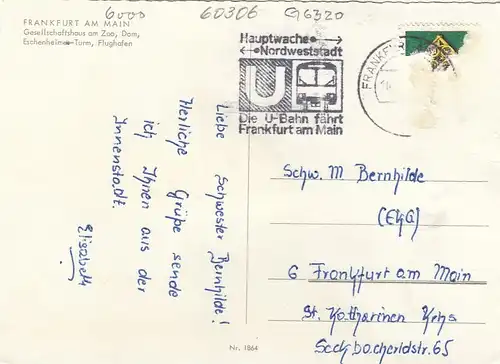 6000 60306 C96320
FRANKFURT AM MAIN
Gesellschaftshaus am Zoo, Dom,
Eschenheimer-Turm, Flughafen
Hauptwache
Nordweststadt
U
Die U-Bahn fährt
Frankfurt am Main
FRANKFU
Liebe Schwester Bernhilde!
Herliche Grüße sende
ich Ihnen aus der
Innenstadt.
Elisabeth
Schw. M Bernhilde
(EKG)
6 Frankfurt am Main
St. Katharinen Krhs
Seckbacherldstr. 65
Nr. 1864